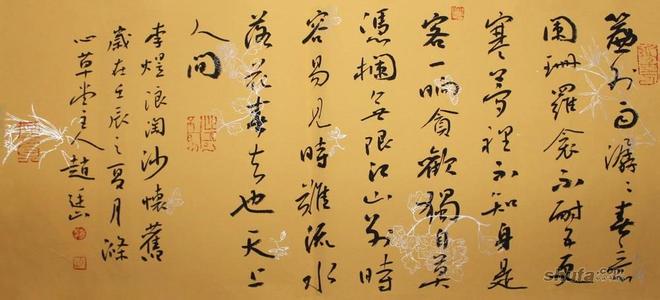 簾外雨潺々春意
闌珊羅衾不耐五更
寒夢裡不知身是
客一晌貪歡獨自莫
憑欄无限江山別時
容易見時難流水
落花春去也天上
人間
李煜浪淘沙懷舊
歲在壬辰之夏月滌
心草堂主人趙